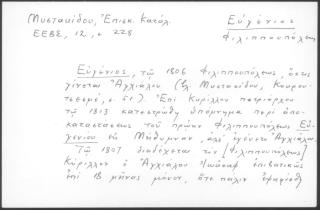 Μυστακίδου, Ἐπισκ. Κατάλ.
ΕΕΒΣ, 12, σ 228
Εὐγένιος
Φιλιππουπόλεως
Εὐγένιος, τῷ 1806 Φιλιππουπόλεως, ὅστις
γίνεται Ἀγχιάλου (Μυστακίδου,
σ. 51). Ἐπὶ Κυρίλλου πατριάρχου
τῷ 1813 κατεστρώθη ὑπόμνημα περὶ ἀπο-
καταστάσεως τοῦ πρώην Φιλιππουπόλεως Εὐ-
γενίου ἐν Μηθύμνῃ,
Τῷ 1807 διαδέχεται τὸν [Φιλιππουπόλεως]
Κύριλλον ὁ Ἀγχιάλου Ἰωάσαφ ἐπιβατικῶς
ἐπὶ 18 μῆνας μόνον, ὅτε πάλιν